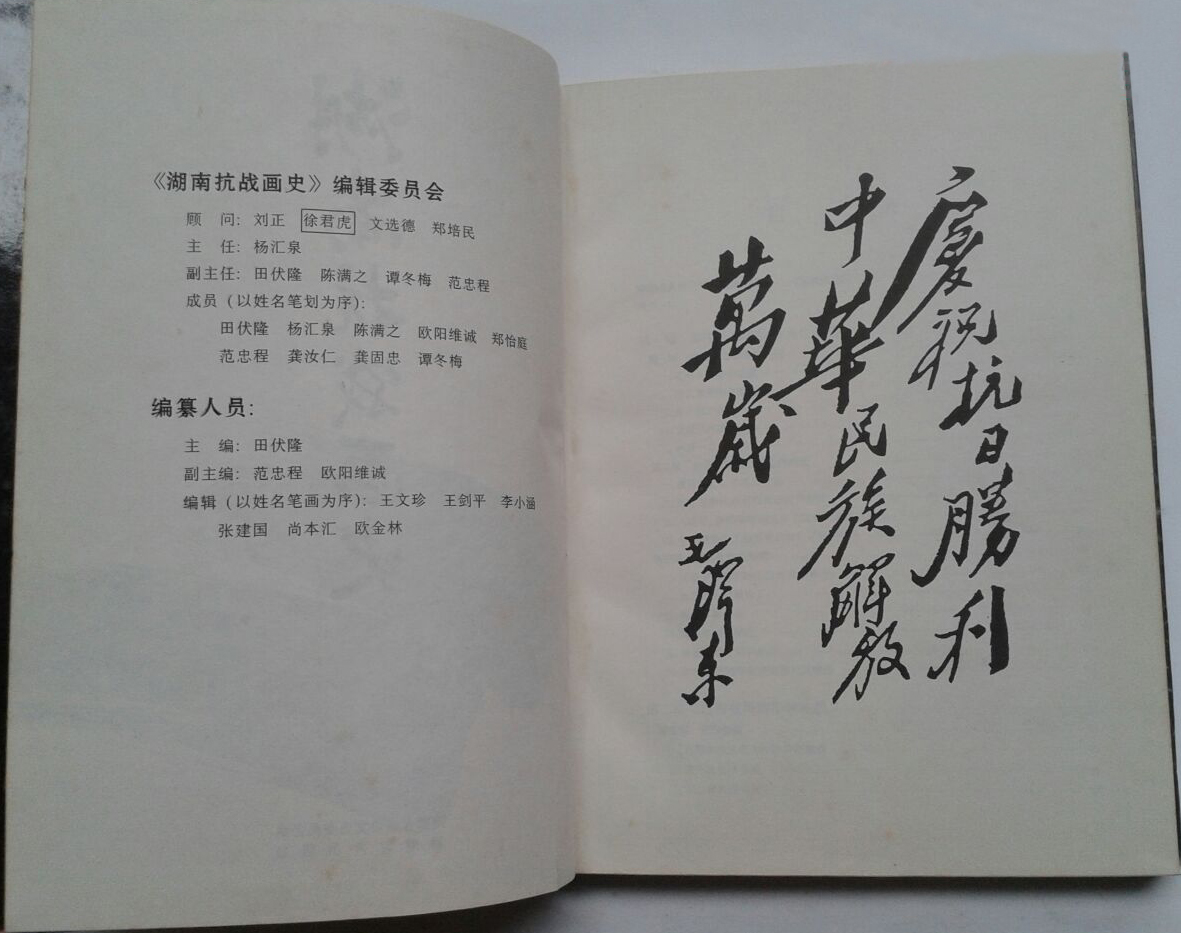 《湖南抗战画史》编辑委员会
顾　问：刘正　徐君虎　文选德　郑培民
主　任：杨汇泉
副主任：田伏隆　陈满之　谭冬梅　范忠程
成员（以姓名笔划为序）：
田伏隆　杨汇泉　陈满之　欧阳维诚　郑怡庭
范忠程　龚汝仁　龚固忠　谭冬梅
编纂人员：
主　编：田伏隆
副主编：范忠程　欧阳维诚
编辑（以姓名笔画为序）：王文珍　王剑平　李小涵
张建国　尚本汇　欧金林
慶祝抗日勝利
中華民族解放
萬歲
毛澤东